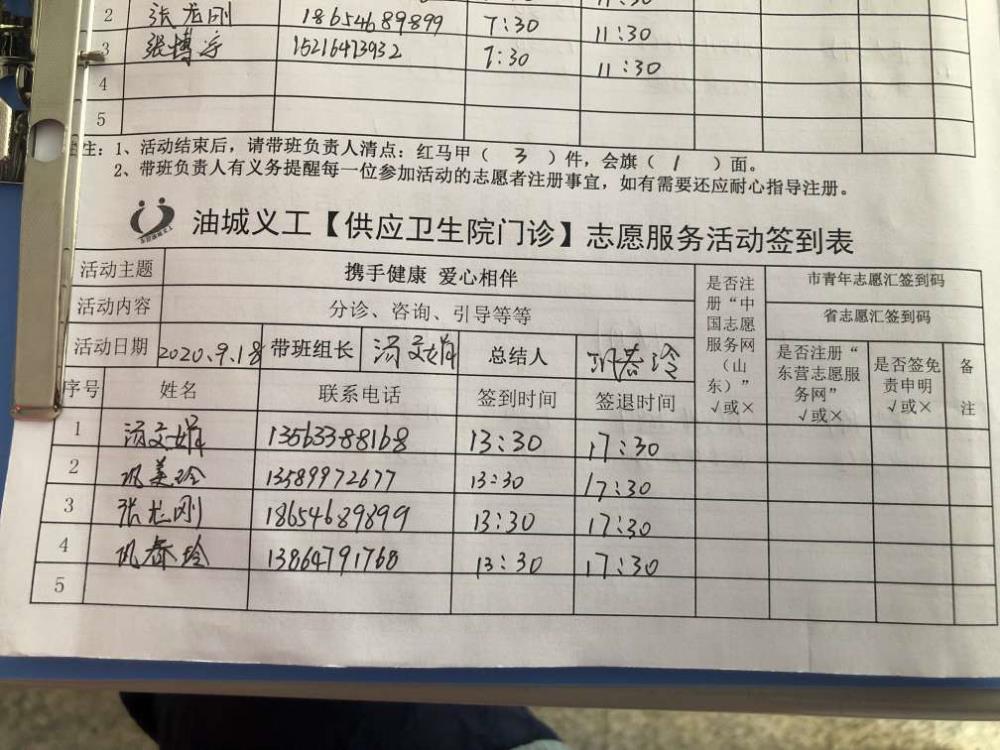 2 张龙刚 18654689899 7:30 11:30
3 张博宇 15216473932 7:30 11:30
4
5
注：1、活动结束后，请带班负责人清点：红马甲（ 3 ）件，会旗（ 1 ）面。
2、带班负责人有义务提醒每一位参加活动的志愿者注册事宜，如有需要还应耐心指导注册。
油城义工【供应卫生院门诊】志愿服务活动签到表
活动主题 携手健康 爱心相伴
活动内容 分诊、咨询、引导等等
活动日期 2020.9.18 带班组长 汤文娟 总结人 巩春玲
是否注册“中国志愿服务网（山东）”√或×
市青年志愿汇签到码
省志愿汇签到码
是否注册“东营志愿服务网”√或×
是否签免责申明√或×
备注
序号 姓名 联系电话 签到时间 签退时间
1 汤文娟 13563388168 13:30 17:30
2 巩美玲 13589972677 13:30 17:30
3 张龙刚 18654689899 13:30 17:30
4 巩春玲 13864791768 13:30 17:30
5